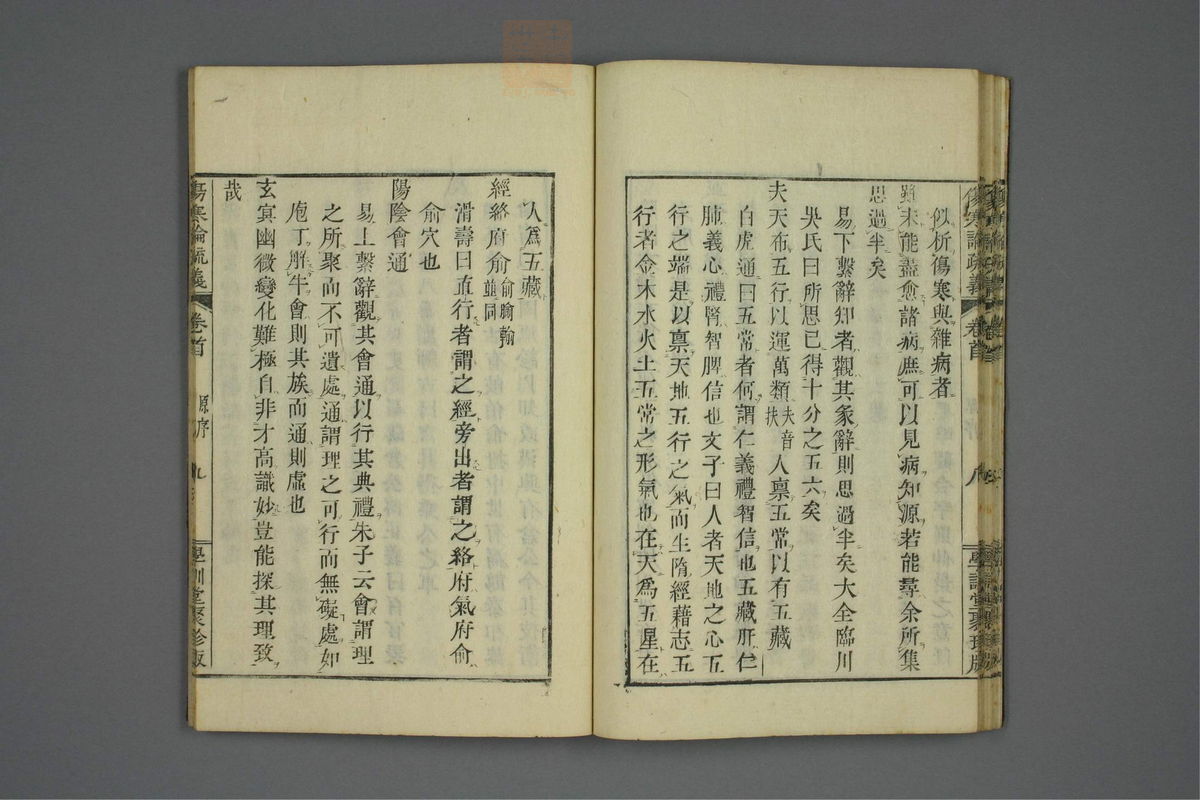 似析傷寒與雜病者
雖未能盡愈諸病庶可以見病知源若能尋余所集
思過半矣
易下繫辭知者觀其彖辭則思過半矣大全臨川
吳氏曰所思已得十分之五六矣
夫天布五行以運萬類夫音扶人稟五常以有五藏
白虎通曰五常者何謂仁義禮智信也五藏肝仁
肺義心禮腎智脾信也文子曰人者天地之心五
行之端是以稟天地五行之氣而生隋經藉志五
行者金木水火土五常之形氣也在天爲五星在
傷寒論疏義
卷首
八
學訓堂聚珍版
人爲五藏
經絡府俞俞腧輸並同
滑壽曰直行者謂之經旁出者謂之絡府氣府俞
俞穴也
陽陰會通
易上繫辭觀其會通以行其典禮朱子云會謂理
之所聚而不可遺處通謂理之可行而無礙處如
庖丁解牛會則其族而通則虛也
玄冥幽微變化難極自非才高識妙豈能探其理致
哉
傷寒論疏義
卷首
源序
九
學訓堂聚珍版